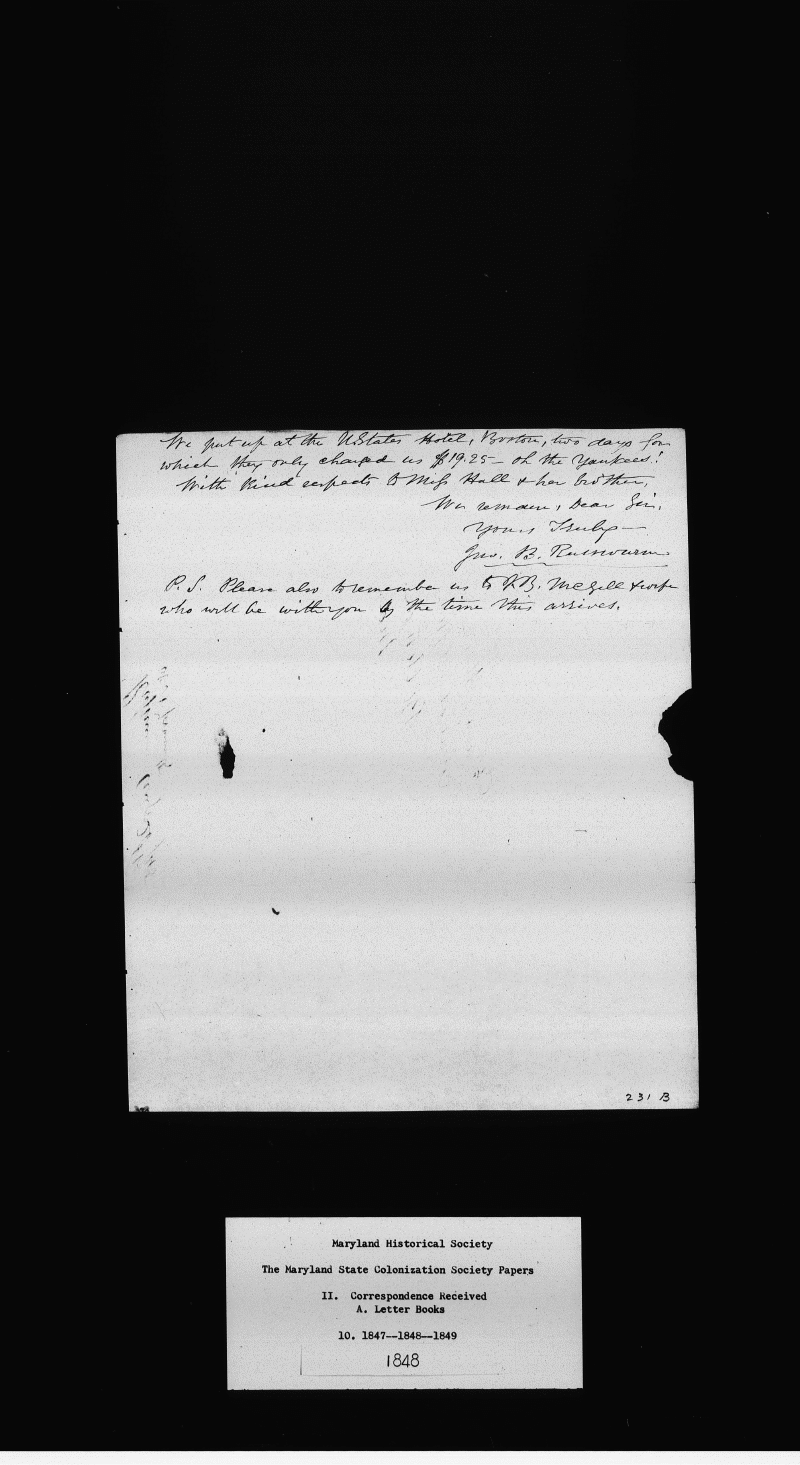 We put up at the U States Hotel, Boston, two days for
which they only charged us $19.25 — oh the Yankees!
With kind respects to Miss Hall & her brother,
We remain, Dear Sir,
Yours Truly —
Jno. B. Russwurm
P.S. Please also to remember us to J.B. McGill & wife
who will be with you by the time this arrives.
231 B
Maryland Historical Society
The Maryland State Colonization Society Papers
II. Correspondence Received
A. Letter Books
10. 1847--1848--1849
1848